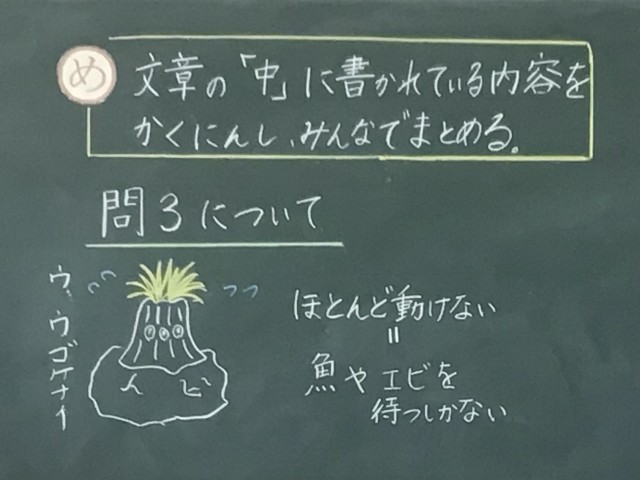 め
文章の「中」に書かれている内容を
かくにんし、みんなでまとめる。
問3について
ウ、ウゴケナイ
ほとんど動けない
=
魚やエビを
待つしかない